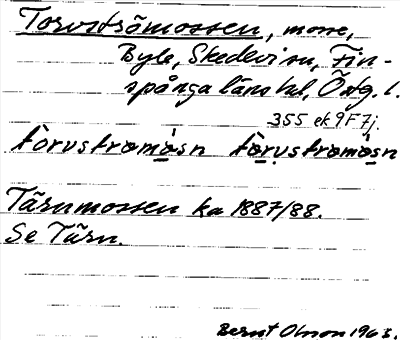 Torvströmossen, mosse,
Byle, Skedevi sn, Fin-
spånga läns hd, Östg. l.
355 ek 9F7j.
tòrvstrømǫ̀sn tò̱rvstrømò̱sn
Tärnmossen ka 1887/88.
Se Tärn.
Bernt Olsson 1963.